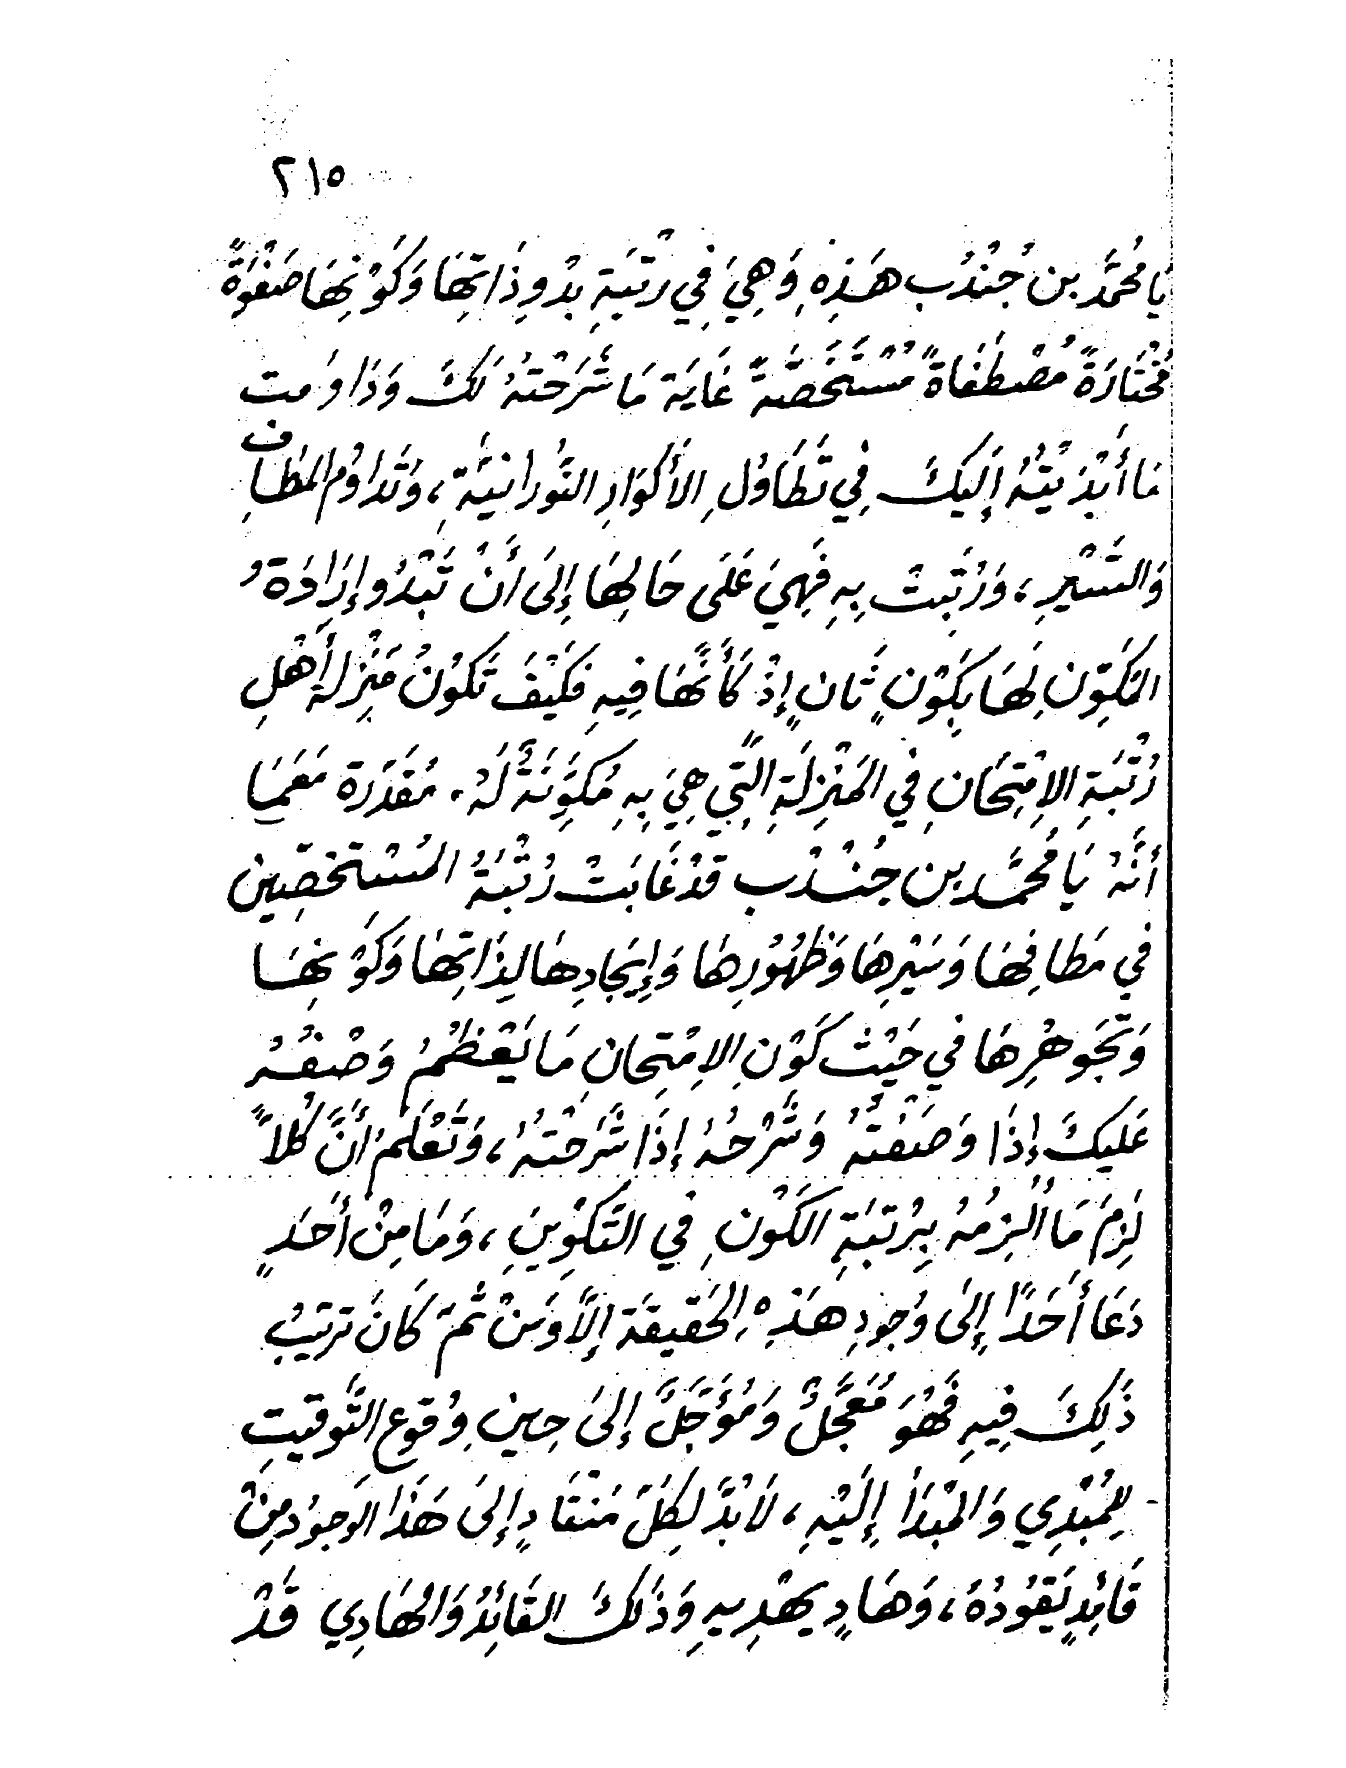 ٢١٥
يَا مُحَمَّد بن جُنْدُب هَذِهِ وَهِيَ فِي رُتْبَةِ بَدْوِ ذَاتِهَا وَكَوْنِهَا صَفْوَةً
مُخْتَارَةً مُصْطَفَاةً مُسْتَخَصَّةً غَايَة مَا شَرَحْتُهُ لَكَ وَدَاوَمت
مَا أَبْدَيْتُهُ إِلَيكَ فِي تَطَاوُلِ الأَكْوَارِ النُّورَانِيَّةِ، وَتَدَاوُم المَطَاف
وَالسَّيْرِ، وَرُتِّبتْ بِهِ فَهِيَ عَلَى حَالِهَا إِلَى أَنْ تَبْدُو إِرَادَةُ
المُكَوِّن لَهَا بِكَوْنٍ ثَانٍ إِذْ كَأَنَّهَا فِيهِ فَكَيْفَ تَكُونُ مَنْزِلة أَهْلِ
رُتْبَةِ الاِمْتِحَانِ فِي المَنْزِلَةِ الَّتِي هِيَ بِهِ مُكَوَّنَةٌ لَهُ. مُقَدَّرَة مَعَمَا
أَنَّهُ يَا مُحَمَّد بن جُنْدُب قَدْ غَابَتْ رُتْبَةُ المُسْتخصّين
فِي مَطَافِهَا وَسَيْرِهَا وَظُهُورِهَا وَإِيجَادِهَا لِذَاتِهَا وَكَوْنِهَا
وَتَجَوهُرِهَا فِي حَيْث كَوْنِ الاِمْتِحَانِ مَا يَعْظُمُ وَصْفُهُ
عَلَيكَ إِذَا وَصَفْتُهُ وَشَرْحُهُ إِذَا شَرَحْتُهُ، وَتَعْلَمُ أَنَّ كُلاًّ
لَزِمَ مَا أُلْزِمُهُ بِرُتبَةِ الكَوْنِ فِي التَّكْوِينِ، وَمَا مِنْ أَحَدٍ
دَعَا أَحَدًا إِلَى وُجُودِ هَذِهِ الحَقِيقَة إِلاَّ وَمَنْ ثَمَّ كَانَ تَرْتِيبُ
ذَلِكَ فِيهِ فَهُوَ مُعَجَّلٌ وَمُؤَجَّلٌ إِلَى حِينِ وُقوعِ التَّوقيتِ
لِلمُبْدِي وَالمُبْدَأ إِلَيْهِ، لاَ بُدَّ لِكُلِّ مَنْقَادٍ إِلَى هَذَا الوُجودِ مِنْ
قَائِدٍ يَقُودُهُ، وَهَادٍ يهْدِيهِ وَذَلكَ القَائِدُ وَالهَادِي قَدْ